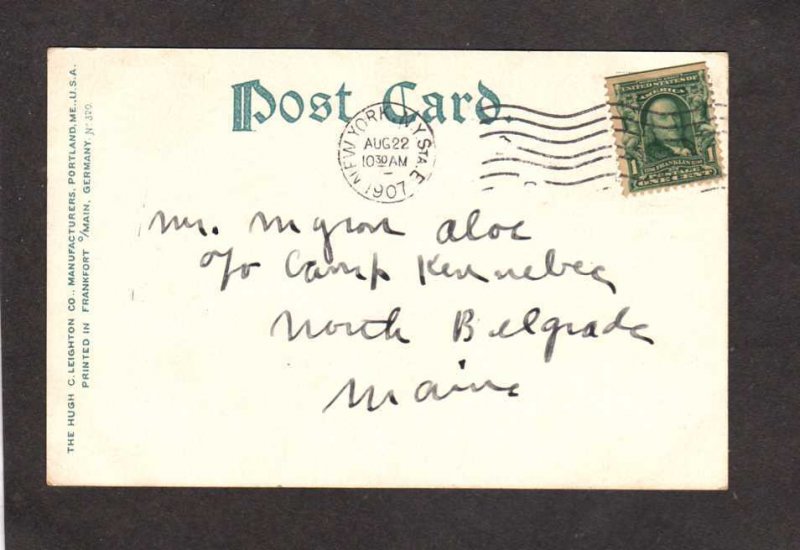 Post Card.
NEW YORK, N.Y. STA. E
AUG 22
10 30 AM
1907
UNITED STATES OF
AMERICA
FRANKLIN
1 1
POSTAGE
ONE CENT
Mr. Myron Aloe
c/o Camp Kennebec
North Belgrade
Maine
THE HUGH C. LEIGHTON CO., MANUFACTURERS, PORTLAND, ME., U.S.A.
PRINTED IN FRANKFORT O/MAIN, GERMANY. No 320.